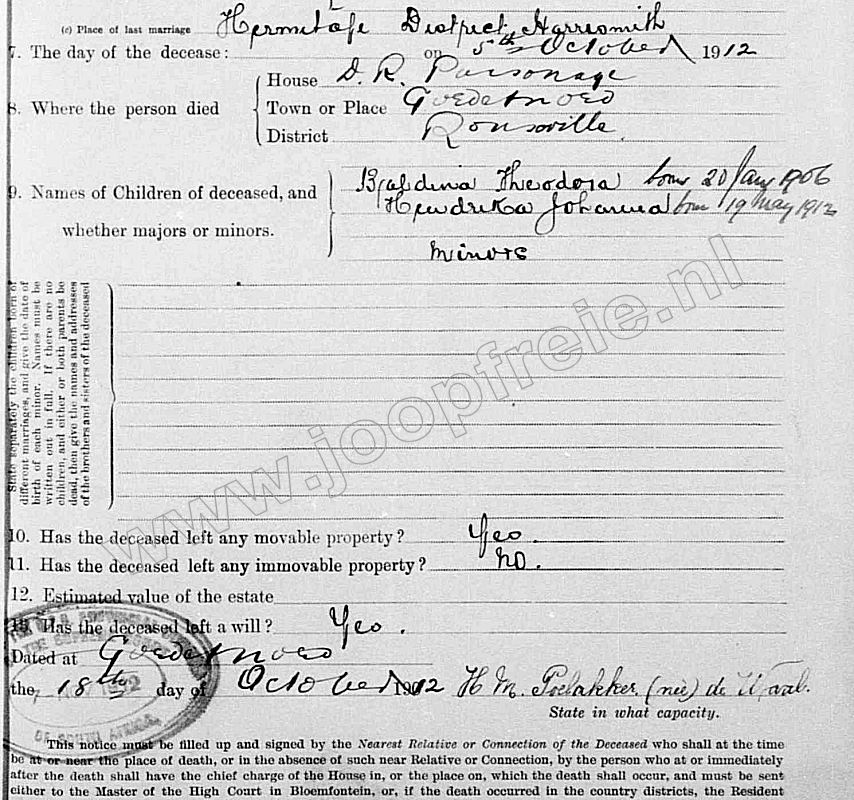 (c) Place of last marriage Hermitage District Harrismith
7. The day of the decease: on 5th October 1912
8. Where the person died
House D. R. Parsonage
Town or Place Goedemoed
District Rouxville.
9. Names of Children of deceased, and
whether majors or minors.
Theodora born 20 Jany 1906
Hendrika Johanna born 19 May 1912
Minors
State separately the children born of
different marriages, and give the date of
birth of each minor. Names must be
written out in full. If there are no
children, and either or both parents be
dead, then give the names and addresses
of the brothers and sisters of the deceased
www.joopfreie.nl
10. Has the deceased left any movable property? Yes.
11. Has the deceased left any immovable property? No.
12. Estimated value of the estate
13. Has the deceased left a will? Yes.
Dated at Goedemoed
the 18th day of October 1912 H M. Poelakker. (née) de Waal.
State in what capacity.
OF SOUTH AFRICA
This notice must be filled up and signed by the Nearest Relative or Connection of the Deceased who shall at the time
be at or near the place of death, or in the absence of such near Relative or Connection, by the person who at or immediately
after the death shall have the chief charge of the House in, or the place on, which the death shall occur, and must be sent
either to the Master of the High Court in Bloemfontein, or, if the death occurred in the country districts, the Resident